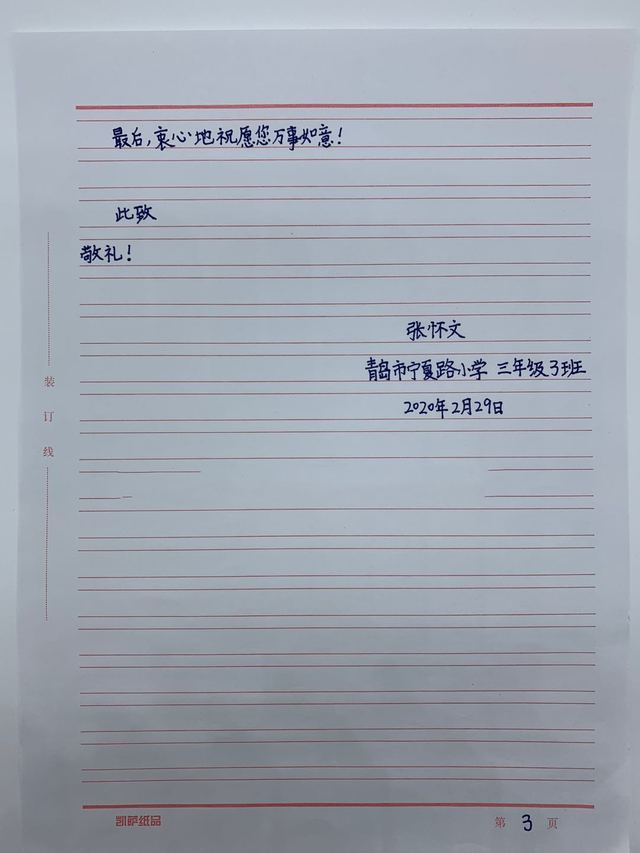 最后,衷心地祝愿您万事如意!
此致
敬礼!
张怀文
青岛市宁夏路小学 三年级3班
2020年2月29日
装订线
凯萨纸品
第 3 页